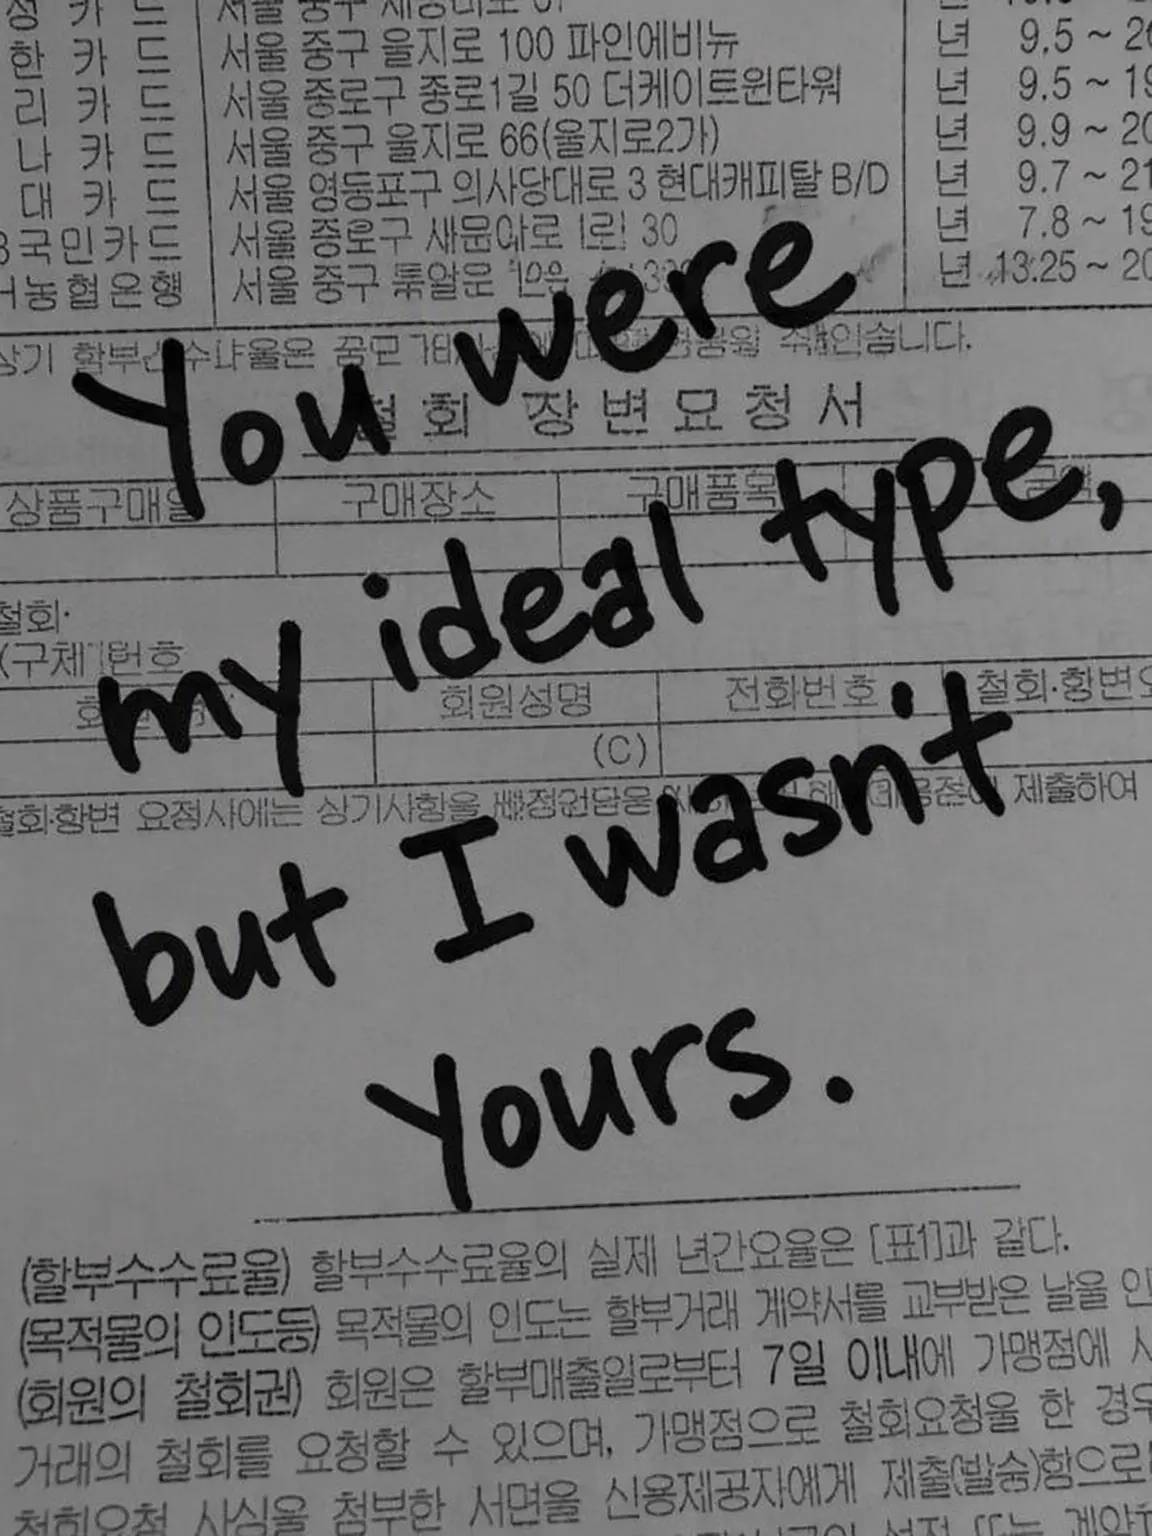 카 드
한 카 드 서울 중구 을지로 100 파인에비뉴 년 9.5 ~
리 카 드 서울 종로구 종로1길 50 더케이트윈타워 년 9.5 ~ 19
나 카 드 서울 중구 을지로 66(을지로2가) 년 9.9 ~ 20
대 카 드 서울 영등포구 의사당대로 3 현대캐피탈 B/D 년 9.7 ~ 21
국민카드 서울 종로구 30 년 7.8 ~ 19
농협은행 서울 중구 년 13.25 ~ 20
상기
You were
회 장변요청서
my ideal type,
상품구매일 구매장소 구매품목
철회·
(구체 번호
회원성명 전화번호 철회·항변요
(C)
but I wasn't
철회·항변 제출하여
yours.
(할부수수료율) 할부수수료율의 실제 년간요율은 [표1]과 같다.
(목적물의 인도등) 목적물의 인도는 할부거래 계약서를 교부받은 날을 인
(회원의 철회권) 회원은 할부매출일로부터 7일 이내에 가맹점에 사
거래의 철회를 요청할 수 있으며, 가맹점으로 철회요청을 한 경우
철회요청 사실을 첨부한 서면을 신용제공자에게 제출(발송)함으로
또는 계약